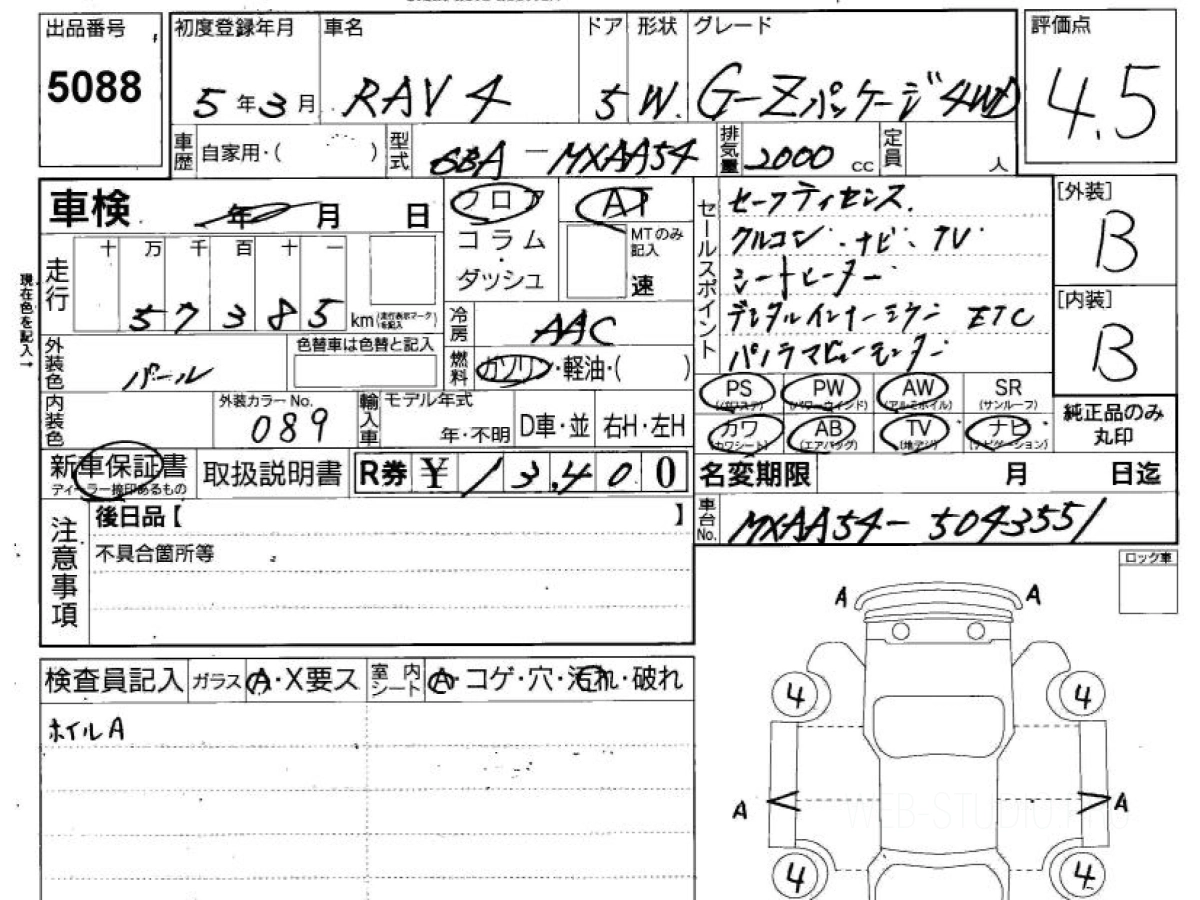 出品番号
5088
初度登録年月 車名 ドア 形状 グレード
5年3月 RAV4 5 W. G-Zパッケージ 4WD
評価点
4.5
車歴 自家用・( ) 型式 6BA-MXAA54 排気量 2000 cc 定員 人
車検 年 月 日
走行 十 万 千 百 十 一
57385 km (走行表示マークを記入)
現在色を記入→
フロア
コラム
・
ダッシュ
AT
MTのみ記入
速
セールスポイント
セーフティセンス.
クルコン・ナビ・TV
シートヒーター
デジタルインナーミラー ETC
パノラマビューモニター
[外装]
B
[内装]
B
冷房 AAC
外装色 パール
色替車は色替と記入
燃料 ガソリン・軽油・( )
内装色
外装カラーNo.
089
輸入車 モデル年式
年・不明 D車・並 右H・左H
PS (パワステ) PW (パワーウインド) AW (アルミホイル) SR (サンルーフ)
カワ (カワシート) AB (エアバッグ) TV (地デジ) ナビ (ナビゲーション)
純正品のみ
丸印
新車保証書
ディーラー捺印あるもの
取扱説明書 R券 ¥ 13,400
名変期限 月 日迄
車台No. MXAA54-5043551
注意事項
後日品【 】
不具合箇所等
ロック車
検査員記入 ガラス A・X要ス 室内シート A・コゲ・穴・汚れ・破れ
ホイルA
A A
4 4
A A
4 4
WEB-STUDIO